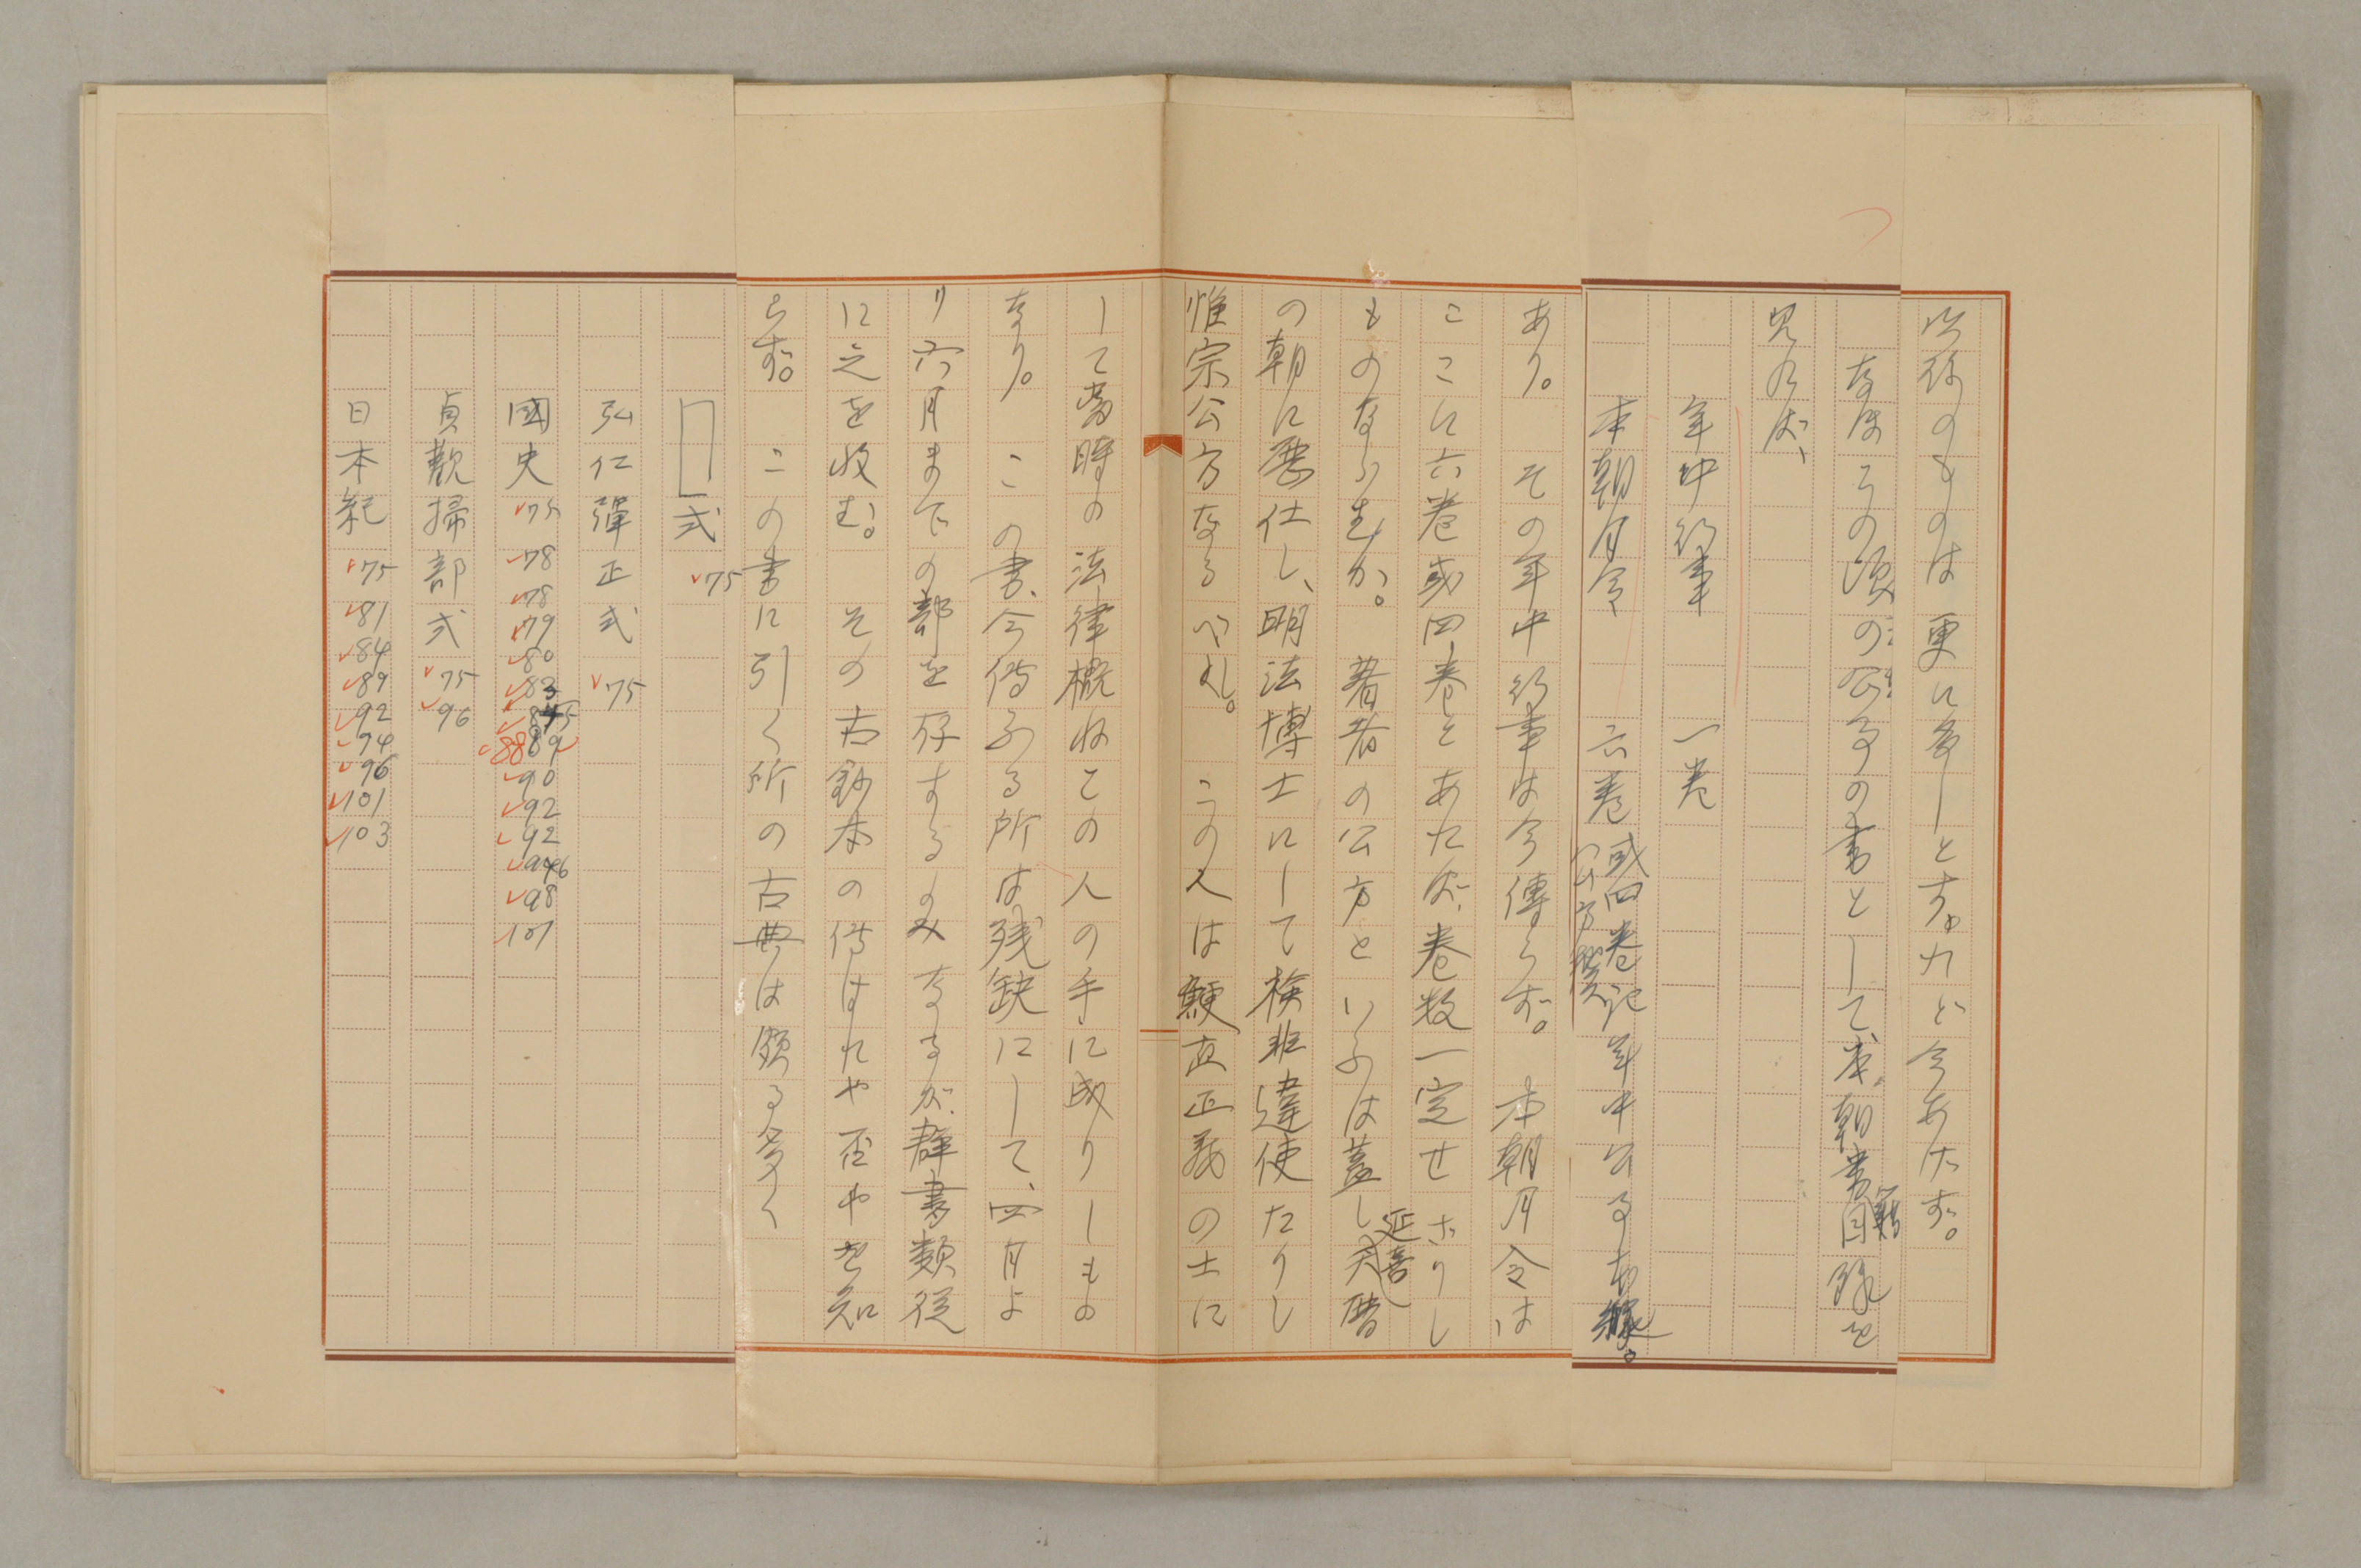 のものは更に多しとすれど今あけず。
なほその頃の公事の書として、本朝書籍目録を
見れば、
年中行事　一巻
本朝月令　六巻　或四巻記年中公事本縁。
公方撰
あり。その年中行事は今傳らず。本朝月令は
ここに六巻或四巻とあれば、巻数一定せざりし
ものならむか。著者の公方といふは蓋し延喜天暦
の朝に歴仕し、明法博士にして検非違使たりし
惟宗公方なるべし。この人は鯁直正義の士に
して當時の法律概ねこの人の手に成りしもの
なり。この書、今傳ふる所は残缺にして、四月よ
り六月までの部を存するのみなるが、群書類従
に之を収む。その古鈔本の傳はれや否やを知
らず。この書に引く所の古典は頗る多く
式　75
弘仁彈正式　75
國史　75 78 78 79 80 83 85 88 89 90 92 92 96 98 101
貞観掃部式　75 96
日本紀　75 81 84 89 92 94 96 101 103